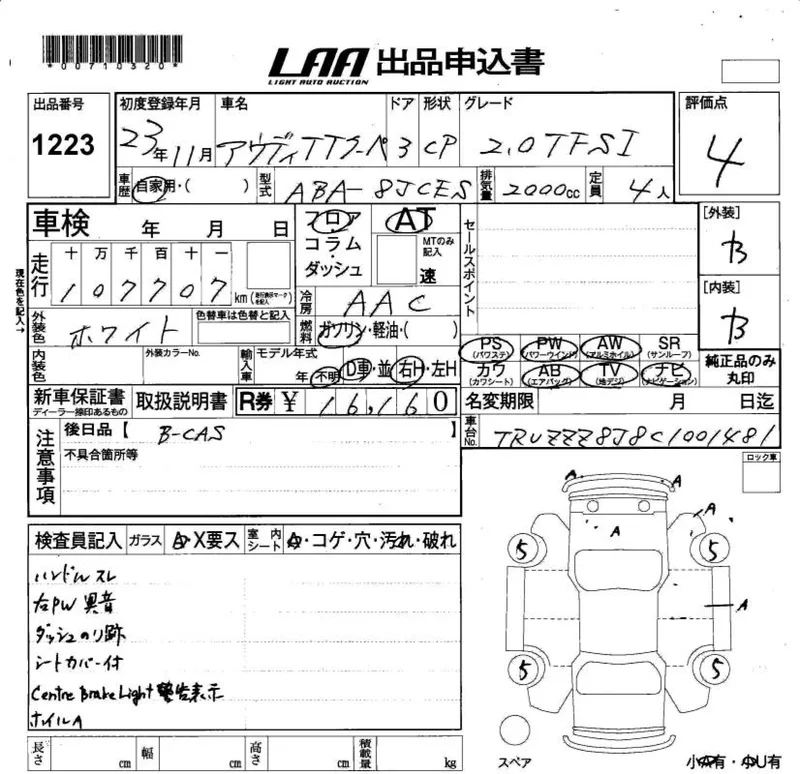 *00710320*
LAA 出品申込書
LIGHT AUTO AUCTION
出品番号
1223
初度登録年月
23年11月
車名
アウディTTクーペ
ドア
3
形状
CP
グレード
2.0TFSI
評価点
4
車歴
自家用・( )
型式
ABA-8JCES
排気量
2000cc
定員
4人
車検 年 月 日
フロア
コラム
・
ダッシュ
AT
MTのみ記入
速
セールスポイント
[外装]
B
[内装]
B
現在色を記入→
走行
十 万 千 百 十 一
107707
km
(走行表示マークを記入)
冷房
AAC
燃料
ガソリン・軽油・( )
外装色
ホワイト
色替車は色替と記入
PS
(パワステ)
PW
(パワーウインド)
AW
(アルミホイル)
SR
(サンルーフ)
カワ
(カワシート)
AB
(エアバッグ)
TV
(地デジ)
ナビ
(ナビゲーション)
純正品のみ
丸印
内装色
外装カラーNo.
輸入車
モデル年式
年 不明
D車・並
右H・左H
新車保証書
ディーラー捺印あるもの
取扱説明書
R券 ¥ 16,160
名変期限 月 日迄
車台No.
TRUZZZ8J8C1001481
注意事項
後日品【 B-CAS 】
不具合箇所等
ロック車
検査員記入
ガラス
A・X要ス
室内シート
・コゲ・穴・汚れ・破れ
ハンドルスレ
右PW異音
ダッシュのり跡
シートカバー付
Centre Brake Light 警告表示
ホイルA
A A
A A
5 5
A
5 5
スペア
小A有・小U有
長さ cm
幅 cm
高さ cm
積載量 kg